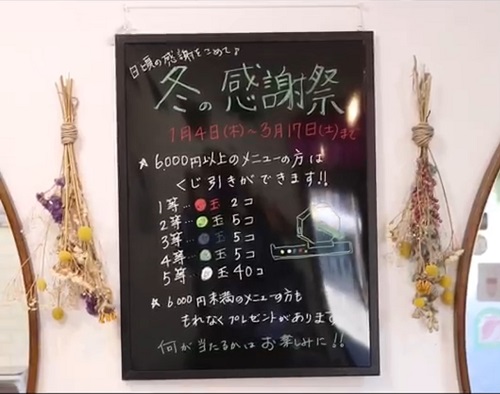 日頃の感謝をこめて♪
冬の感謝祭
1月4日(木)～3月17日(土)まで
☆6,000円以上のメニューの方は
くじ引きができます!!
1等…玉 2コ
2等…玉 5コ
3等…玉 5コ
4等…玉 5コ
5等…玉 40コ
☆6,000円未満のメニューの方も
もれなくプレゼントがあります
何が当たるかはお楽しみに!!